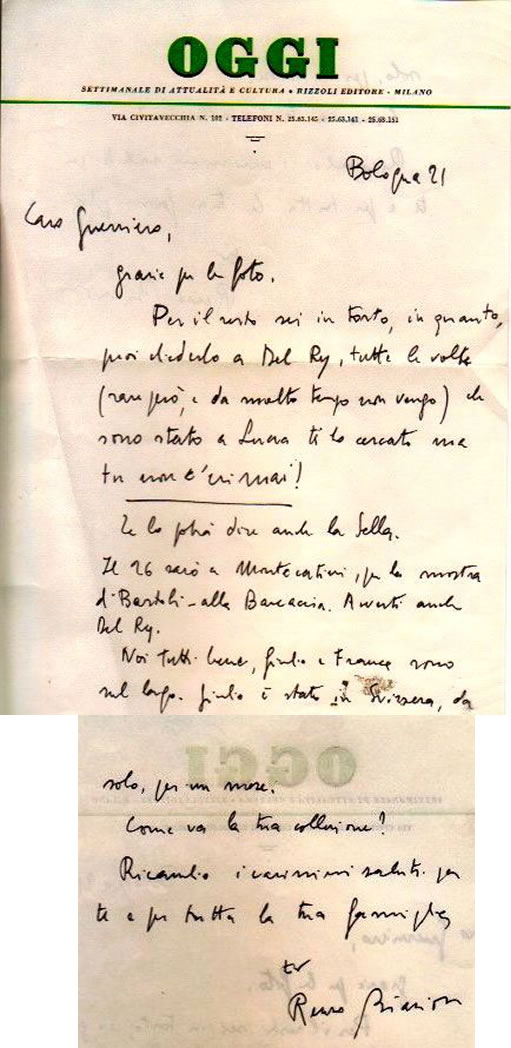 OGGI
SETTIMANALE DI ATTUALITÀ E CULTURA • RIZZOLI EDITORE - MILANO
VIA CIVITAVECCHIA N. 102 - TELEFONI N. 25.63.145 - 25.63.141 - 25.63.151
Bologna 21
Caro Guerriero,
grazie per le foto.
Per il resto sei in torto, in quanto,
puoi chiederlo a Del Ry, tutte le volte
(rare però, e da molto tempo non vengo) che
sono stato a Lucca ti ho cercato ma
tu non c'eri mai!
Te lo potrà dire anche la Sella.
Il 26 sarò a Montecatini, per la mostra
di Bartoli - alla Barcaccia. Avverti anche
Del Ry.
Noi tutti bene, Giulio e France sono
sul lago. Giulio è stato in Svizzera, da
solo, per un mese.
Come va la tua collezione?
Ricambio i carissimi saluti per
te e per tutta la tua famiglia
tuo
Renzo Biasion